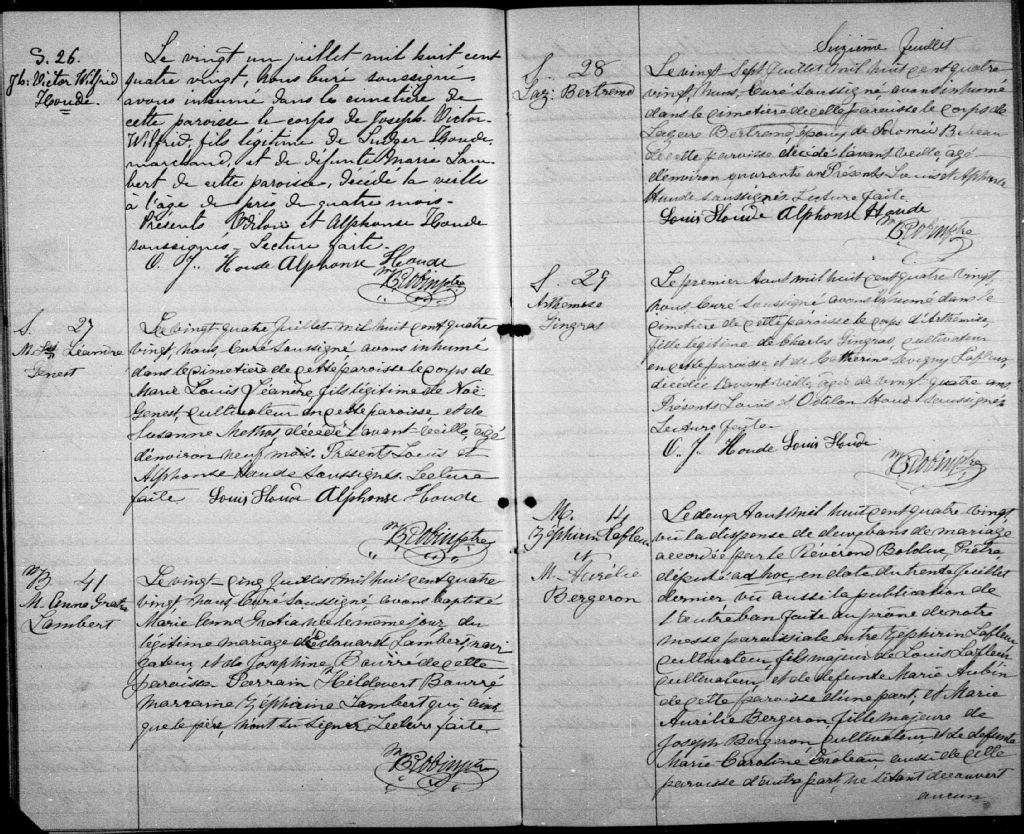 S. 26.
Jh: Victor Wilfrid
Houde.
Le vingt un juillet mil huit cent
quatre vingt, Nous Curé soussigné
avons inhumé dans le cimetière de
cette paroisse le corps de Joseph Victor
Wilfrid, fils légitime de Ludger Houde,
marchand, et de défunte Marie Lam-
bert de cette paroisse, décédé la veille
à l'âge de près de quatre mois.
Présents Odilon et Alphonse Houde
soussignés. Lecture faite.
O. J. Houde Alphonse Houde
Robin ptre
S. 27
M. Ls Léandre
Genest
Le vingt quatre Juillet mil huit cent quatre
vingt, nous, Curé Soussigné avons inhumé
dans le cimetière de cette paroisse le corps de
Marie Louis Léandre fils légitime de Noë
Genest, cultivateur en cette paroisse et de
Suzanne Methot, décédé l'avant veille, agé
d'environ neuf mois. Présents Louis et
Alphonse Houde Soussignés. Lecture
faite Louis Houde Alphonse Houde
Robin ptre
B 41
M. Anna Gratia
Lambert
Le vingt-cinq Juillet mil huit cent quatre
vingt, nous Curé Soussigné, avons baptisé
Marie Anna Gratia née le meme jour du
légitime mariage d'Edouard Lambert, navi-
gateur et de Josephine Bourré de cette
paroisse Parrain Hildevert Bourré
Marraine Zéphaine Lambert qui ainsi
que le père, n'ont su signer Lecture faite.
Robin ptre
Suizième feuillet
S. 28
Laz: Bertrand
Le vingt Sept Juillet mil huit cent quatre
vingt, Nous, Curé Soussigné avons inhumé
dans le cimetière de cette paroisse le corps de
Lazare Bertrand, époux de Salomée
de cette paroisse décédé l'avant veille, agé
d'environ quarante ans Présents Louis et Alphonse
Houde Soussignés Lecture faite
Louis Houde Alphonse Houde
Robin ptre
S. 29
Arthemise
Gingras
Le premier Aout mil huit cent quatre vingt,
nous, Curé Soussigné avons inhumé dans le
cimetière de cette paroisse le corps d'Arthémise,
fille légitime de Charles Gingras, cultivateur
en cette paroisse et de Catherine Levigny Lafleur
décédée l'avant veille, agée de vingt-quatre ans
Présents Louis et Odilon Houde Soussignés
Lecture faite
O. J. Houde Louis Houde
Robin ptre
M. 14
Zéphirin Lafleur
et
M. Aurélie
Bergeron
Le deux Aout mil huit cent quatre vingt,
vu la dispense de deux bans de mariage
accordée par le Révérend Bolduc, Prêtre,
député ad hoc, en date du trente Juillet
dernier vu aussi la publication de
l'autre ban faite au prône de notre
messe paroissiale entre Zéphirin Lafleur
cultivateur, fils majeur de Louis Lafleur
cultivateur, et de defunte Marie Aubin
de cette paroisse d'une part, et Marie
Aurélie Bergeron, fille majeure de
Joseph Bergeron, cultivateur, et de defunte
Marie Caroline Croteau, aussi de cette
paroisse d'autre part, ne s'étant découvert
aucun